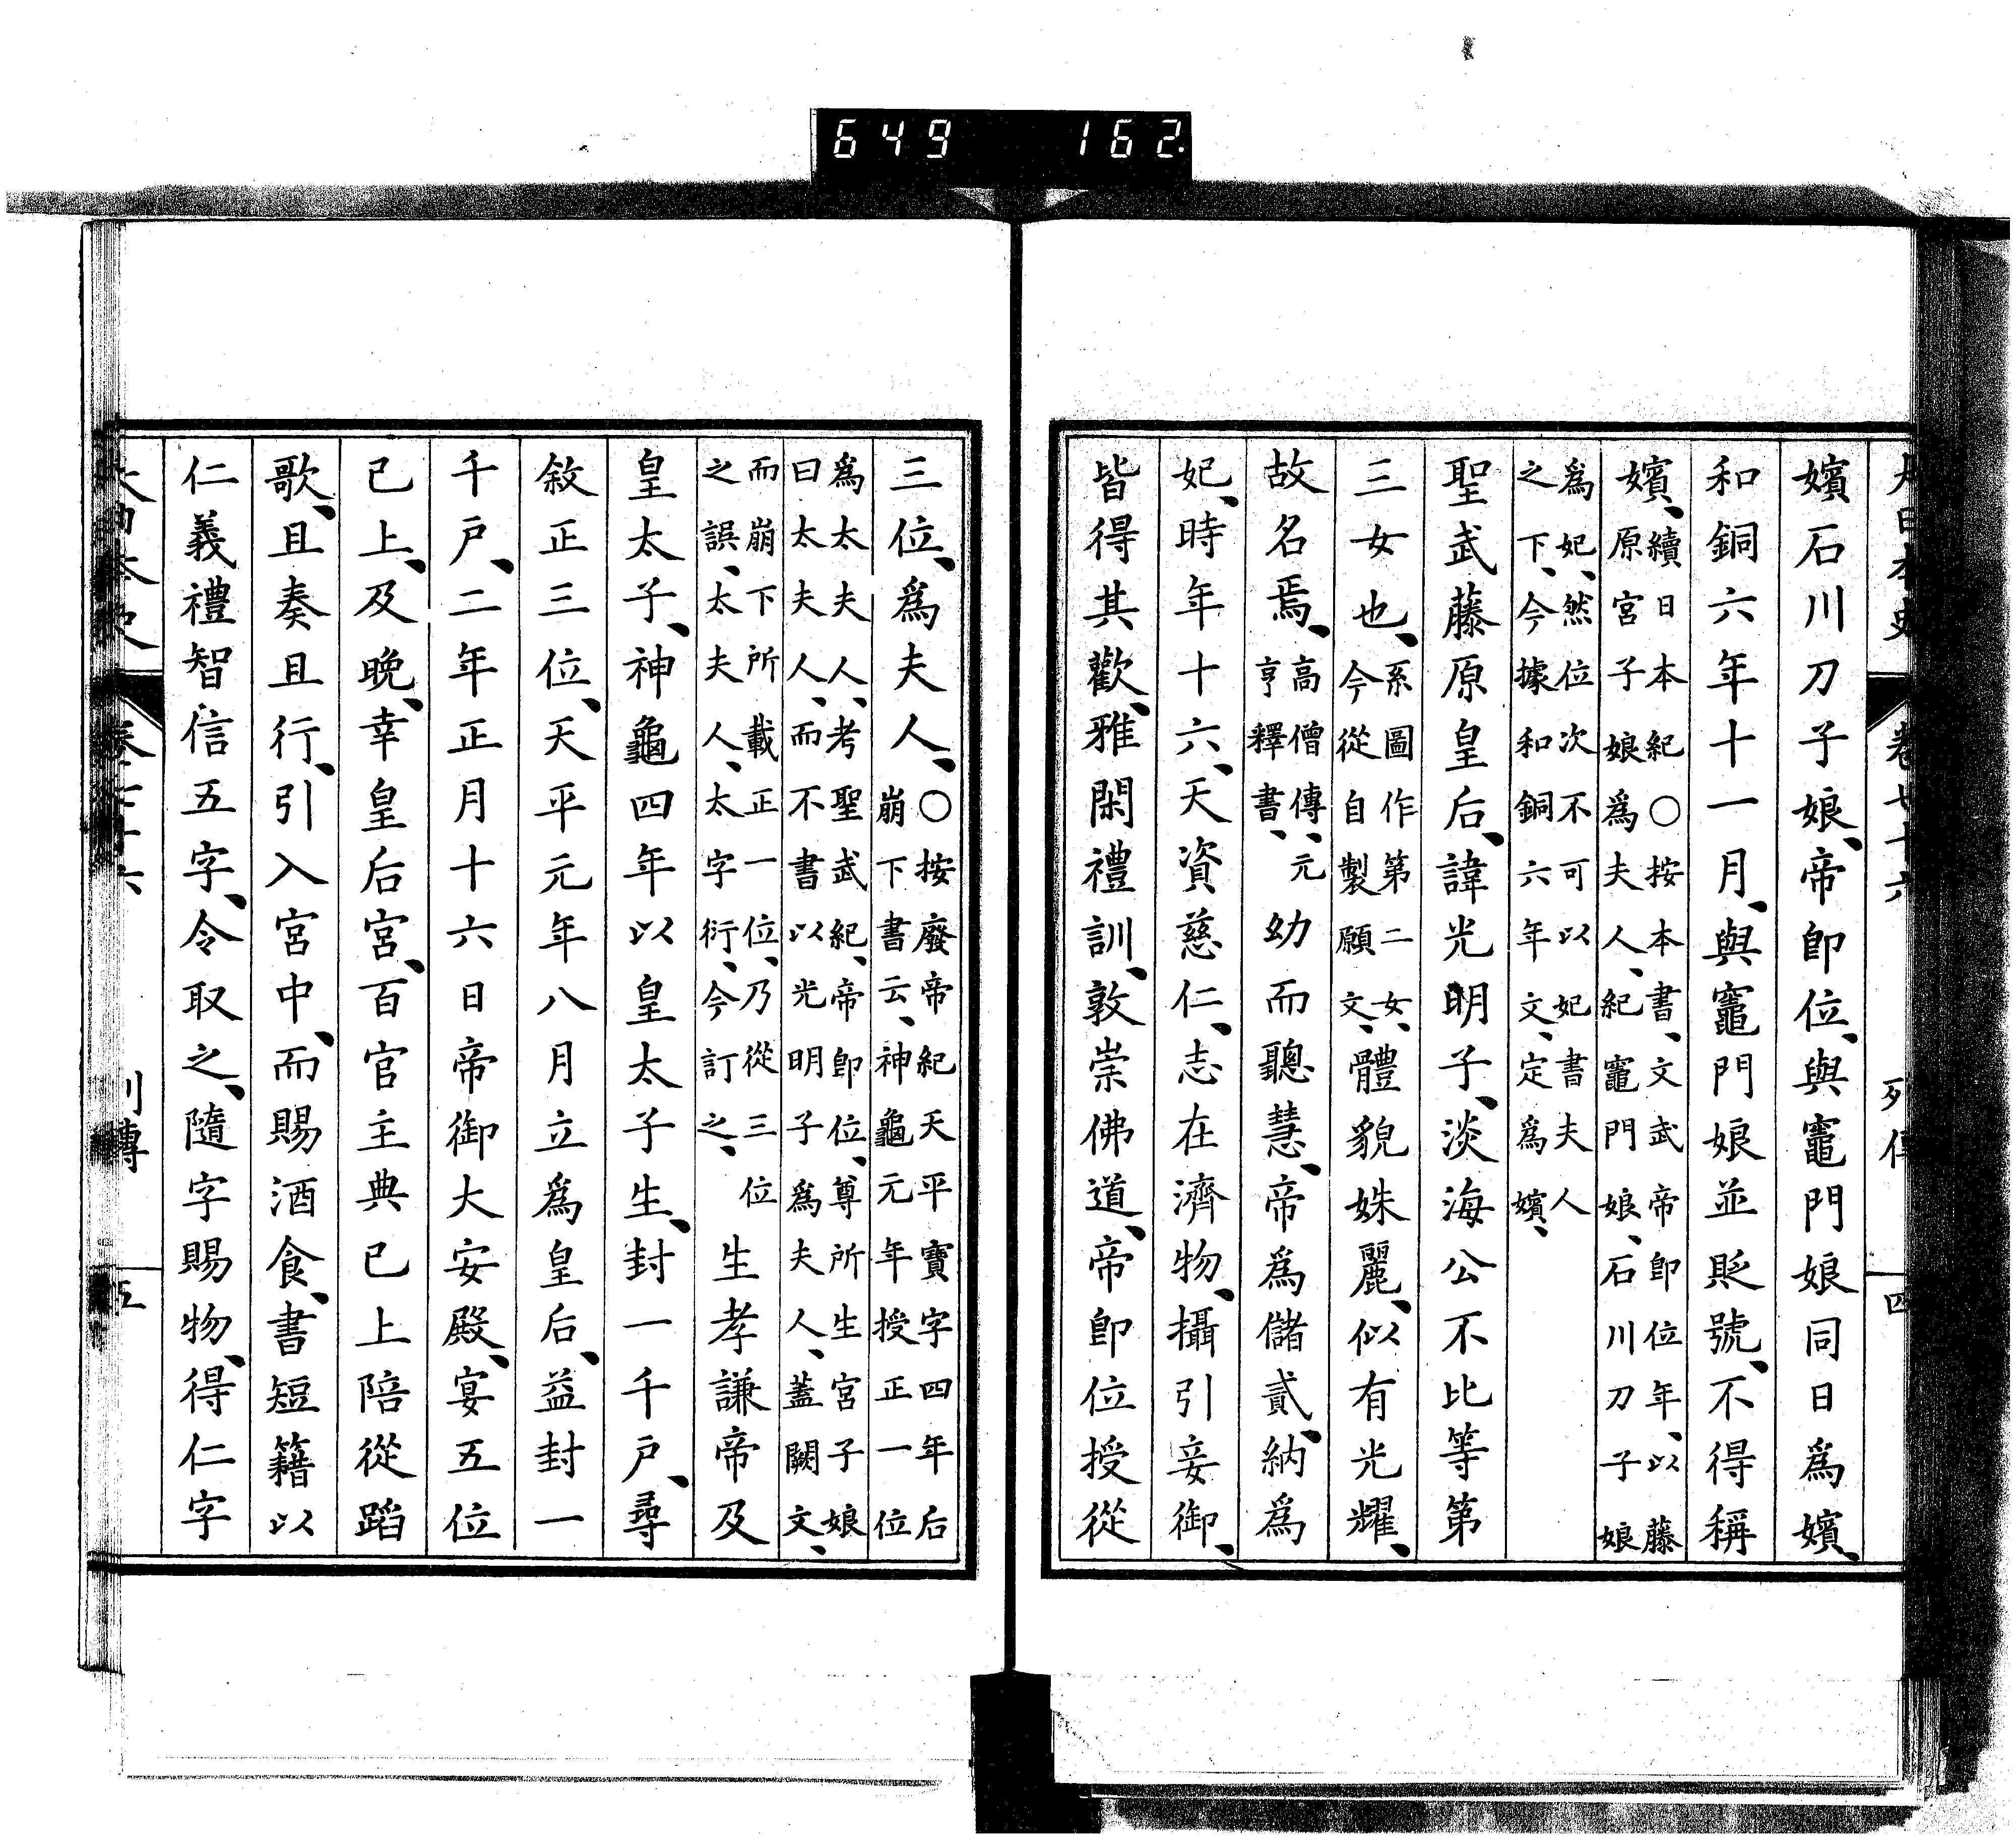 649 162.
大日本史 卷七十六 列傳 四
嬪石川刀子娘、帝卽位、與竈門娘同日爲嬪、
和銅六年十一月、與竈門娘並貶號、不得稱
嬪、續日本紀○按本書、文武帝卽位年、以藤
原宮子娘爲夫人、紀竈門娘、石川刀子娘
爲妃、然位次不可以妃書夫人
之下、今據和銅六年文、定爲嬪、
聖武藤原皇后、諱光明子、淡海公不比等第
三女也、系圖作第二女、
今從自製願文、體貌姝麗、似有光耀、
故名焉、高僧傳、元
亨釋書、幼而聽慧、帝爲儲貳、納爲
妃、時年十六、天資慈仁、志在濟物、攝引妾御、
皆得其歡、雅閑禮訓、敦崇佛道、帝卽位授從
三位、爲夫人、○按廢帝紀天平寶字四年后
崩下書云、神龜元年授正一位
爲太夫人、考聖武紀、帝卽位、尊所生宮子娘
曰太夫人、而不書以光明子爲夫人、蓋闕文、
而崩下所載正一位、乃從三位
之誤、太夫人、太字衍、今訂之、生孝謙帝及
皇太子、神龜四年以皇太子生、封一千戶、尋
敘正三位、天平元年八月立爲皇后、益封一
千戶、二年正月十六日帝御大安殿、宴五位
已上、及晚、幸皇后宮、百官主典已上陪從蹈
歌、且奏且行、引入宮中、而賜酒食、書短籍以
仁義禮智信五字、令取之、隨字賜物、得仁字
大日本史 卷七十六 列傳 五